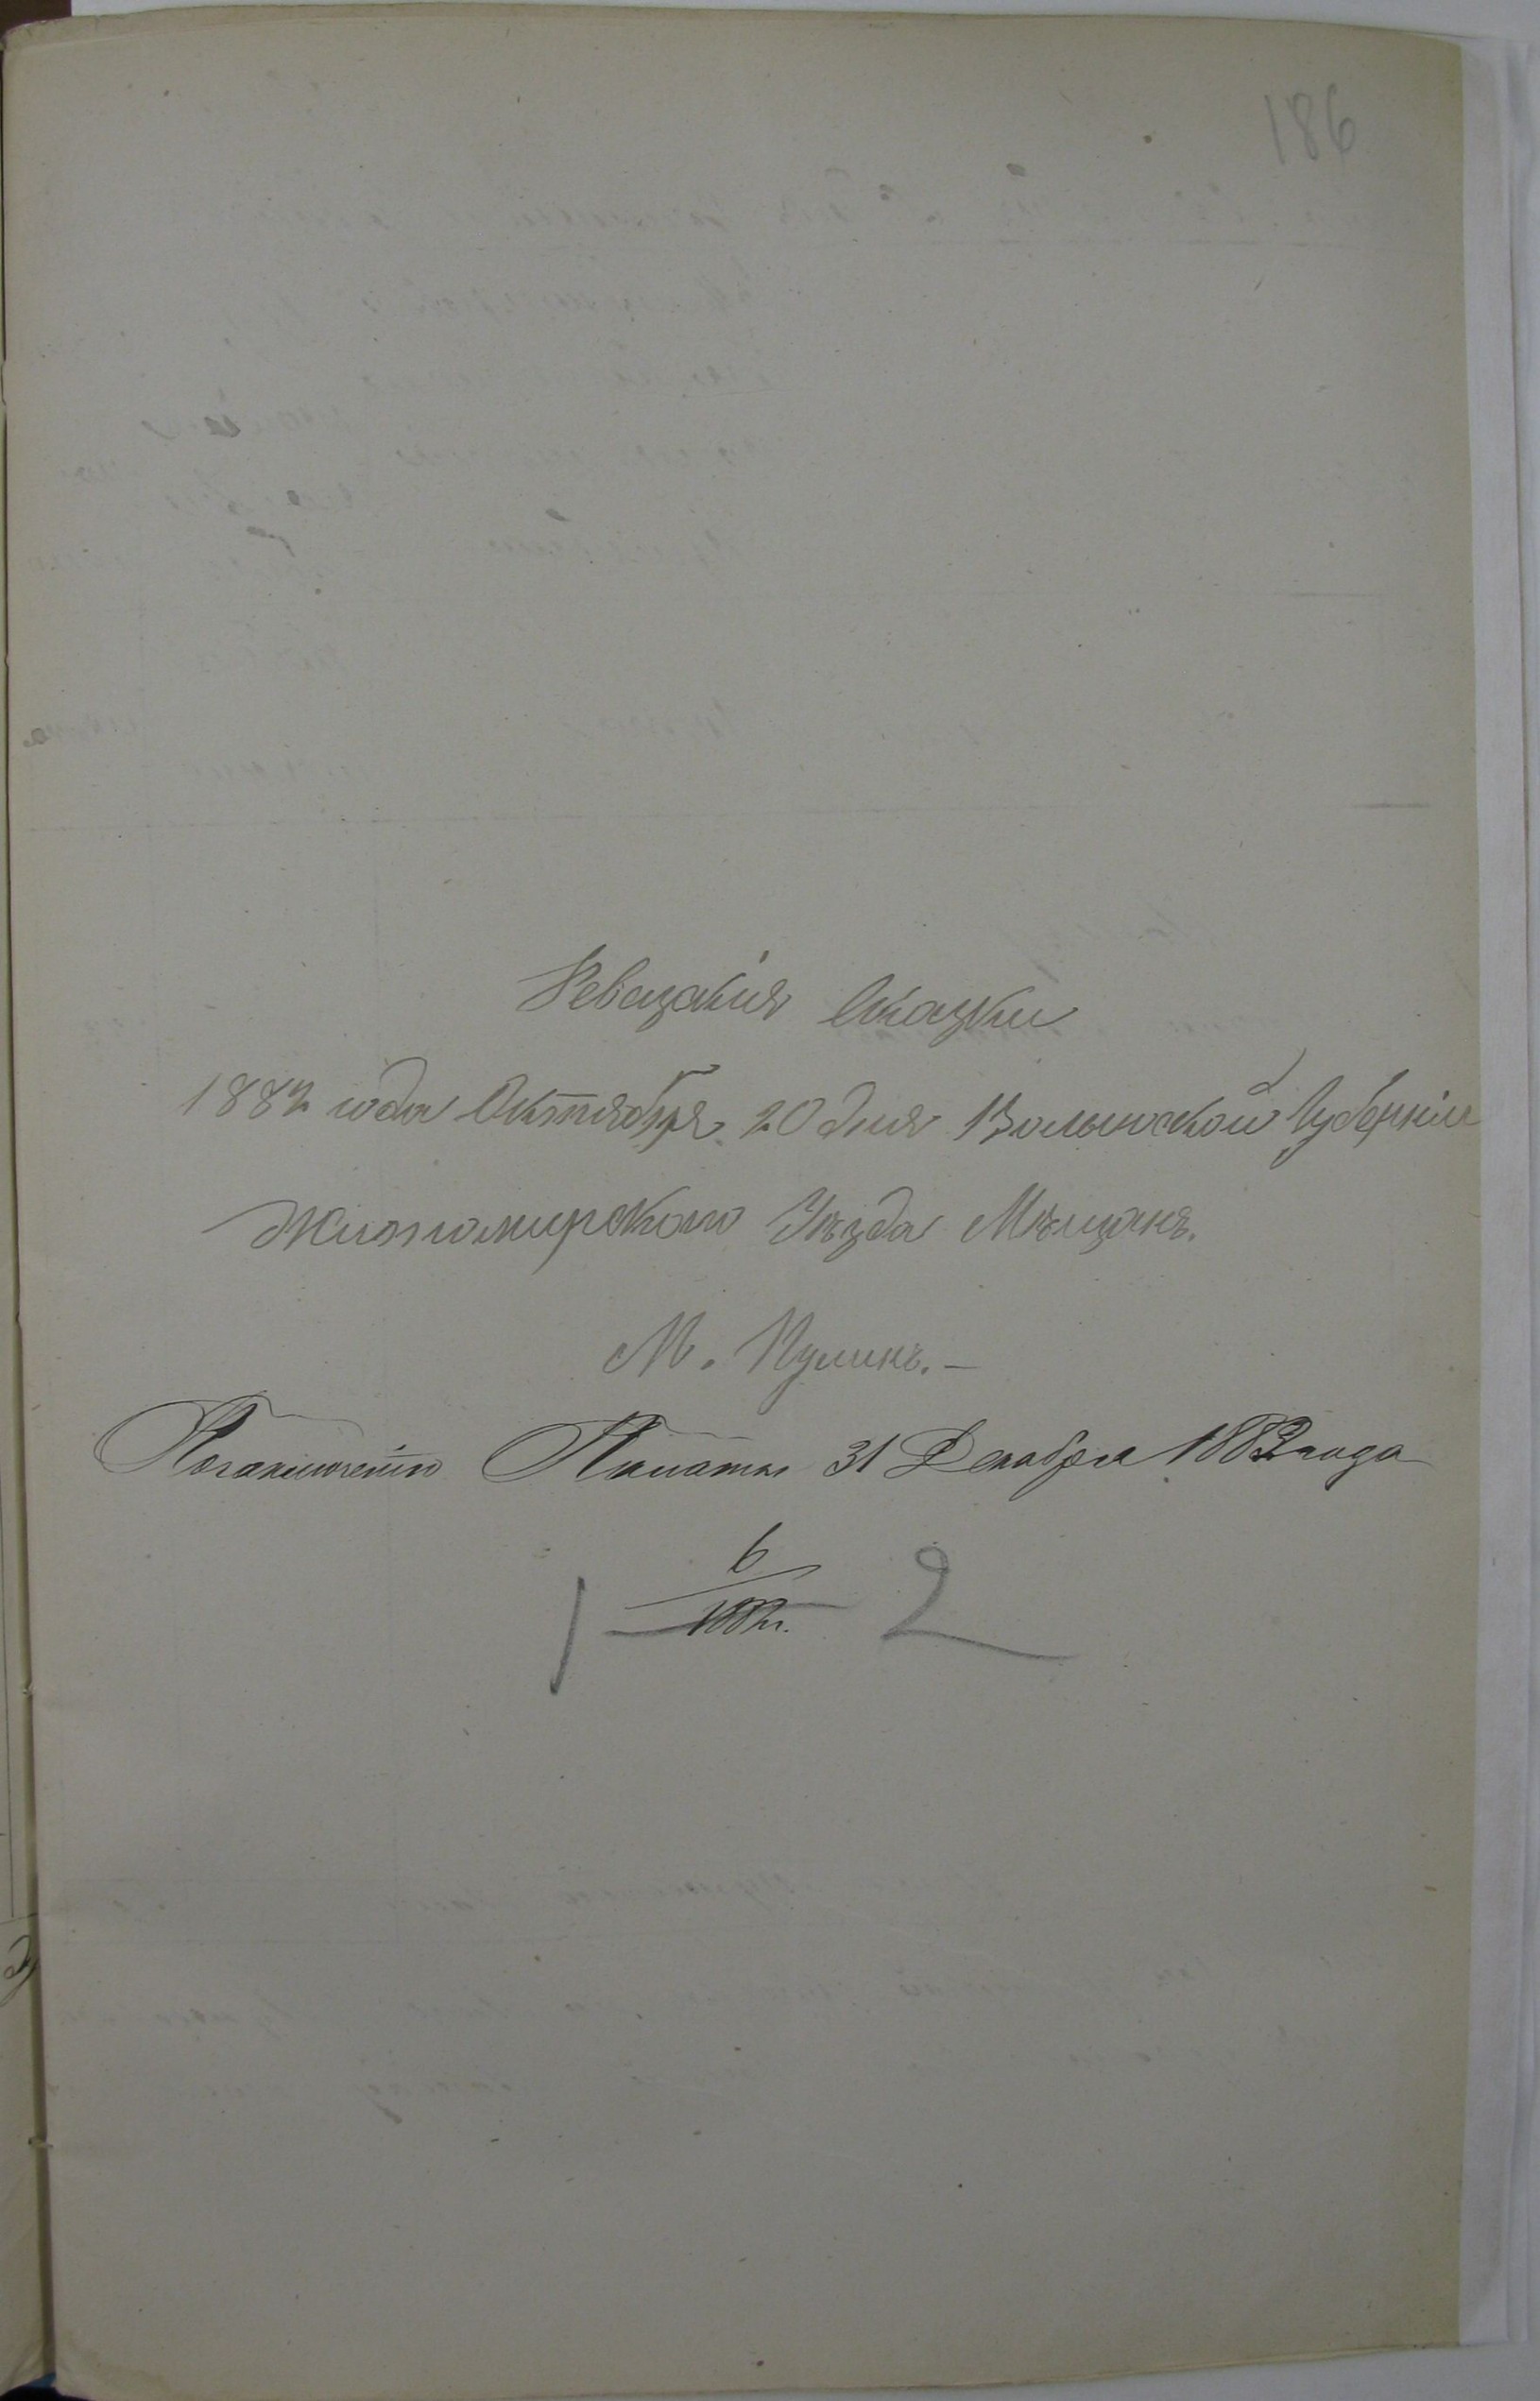 186
Ревизскія Сказки
1882 года Октября 20 дня Волынской Губерніи
Житомирскаго Уѣзда Мѣщанъ.
М. Пулинъ. –
По заключенію Палаты 31 Декабря 1882 года
6
1 1882 г. 2